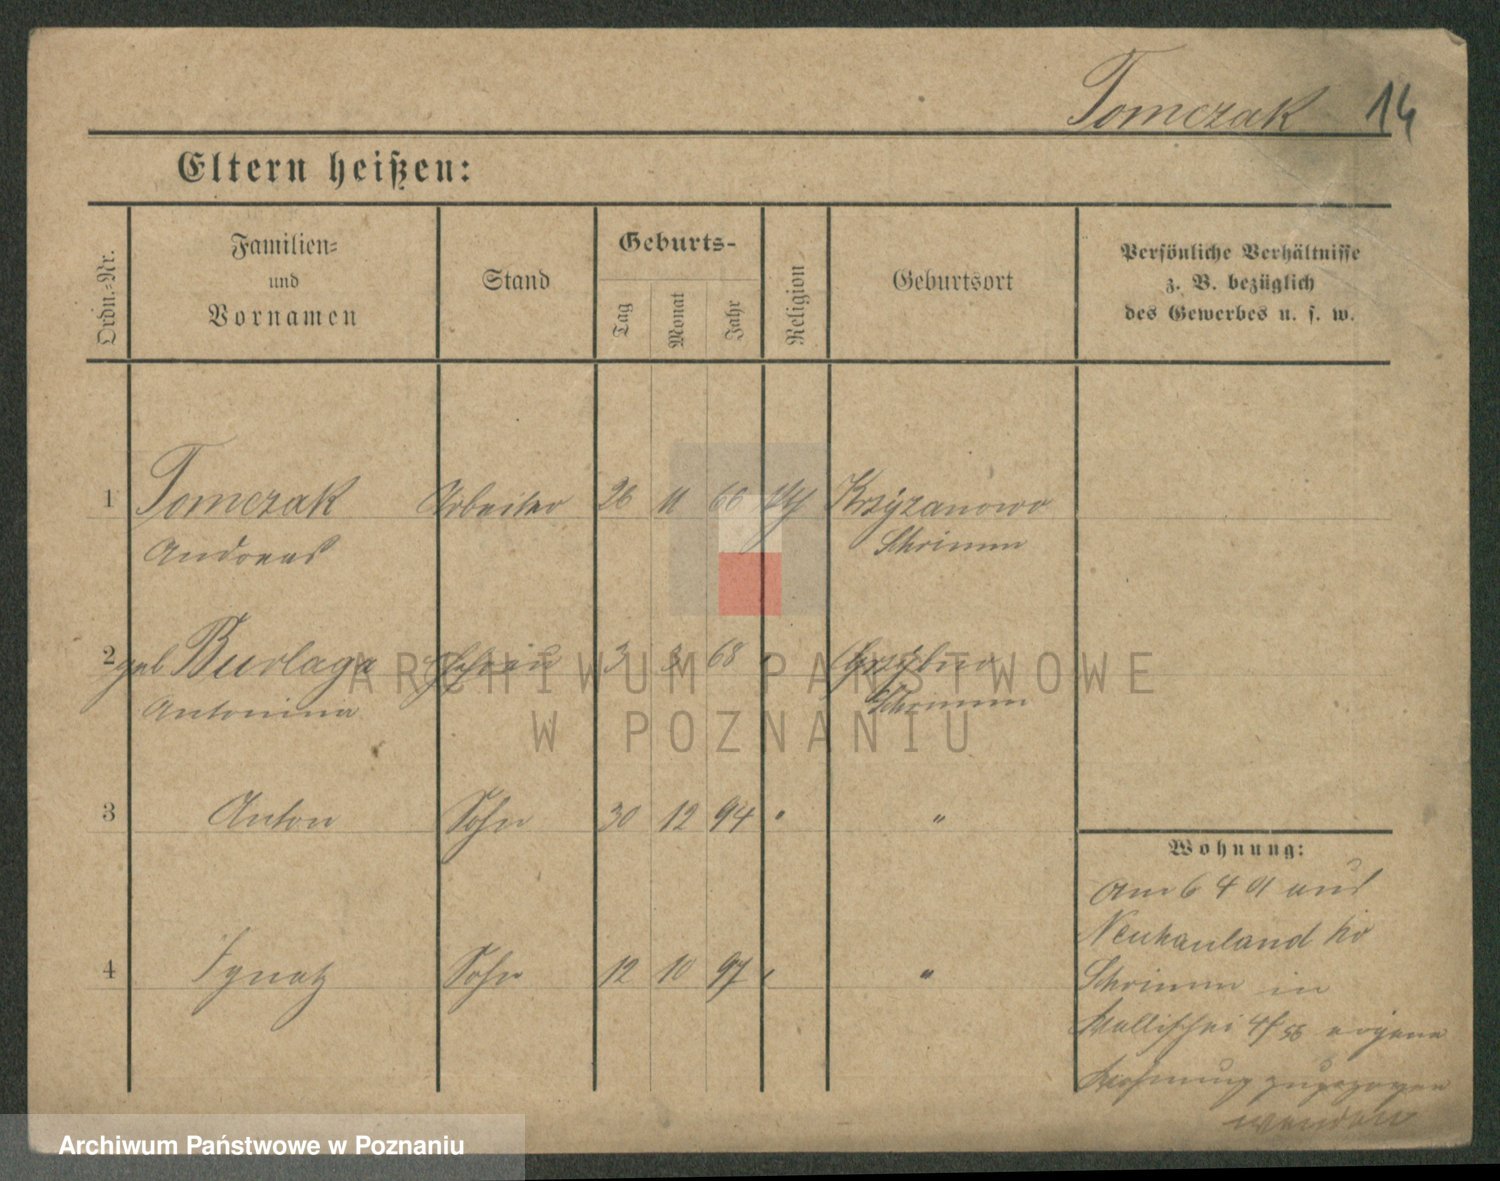 Tomczak 14
Eltern heißen:
Ordn.-Nr.
Familien-
und
Vornamen
Stand
Geburts-
Tag
Monat
Jahr
Religion
Geburtsort
Persönliche Verhältnisse
z. B. bezüglich
des Gewerbes u. s. w.
1 Tomczak Arbeiter 26 11 66 Krzyzanowo
Andreas Schrimm
2 geb Burlaga 3 3 68 Grzybno
Antonina Schrimm
3 Anton Sohn 30 12 94 " "
4 Ignatz Sohn 12 10 97 " "
Wohnung:
Am 6 4 01 aus
Neuhauland Kr
Schrimm in
Wallischei 4/5 eigene
Wohnung zugezogen
wenden
ARCHIWUM PAŃSTWOWE
W POZNANIU
Archiwum Państwowe w Poznaniu